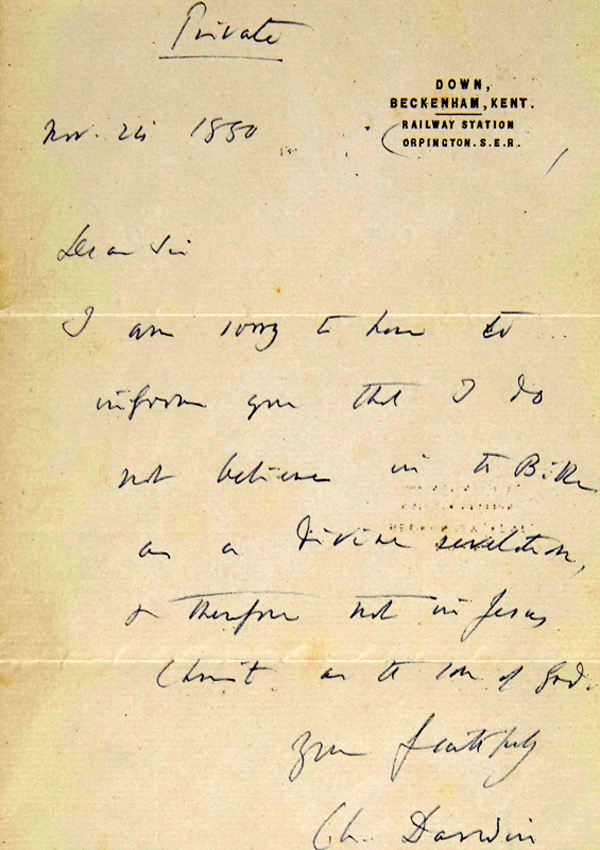 Private
DOWN,
BECKENHAM, KENT.
RAILWAY STATION
ORPINGTON. S.E.R.
Nov. 24 1880
Dear Sir
I am sorry to have to
inform you that I do
not believe in the Bible
as a divine revelation,
& therefore not in Jesus
Christ as the son of God.
Yours faithfully
Ch. Darwin